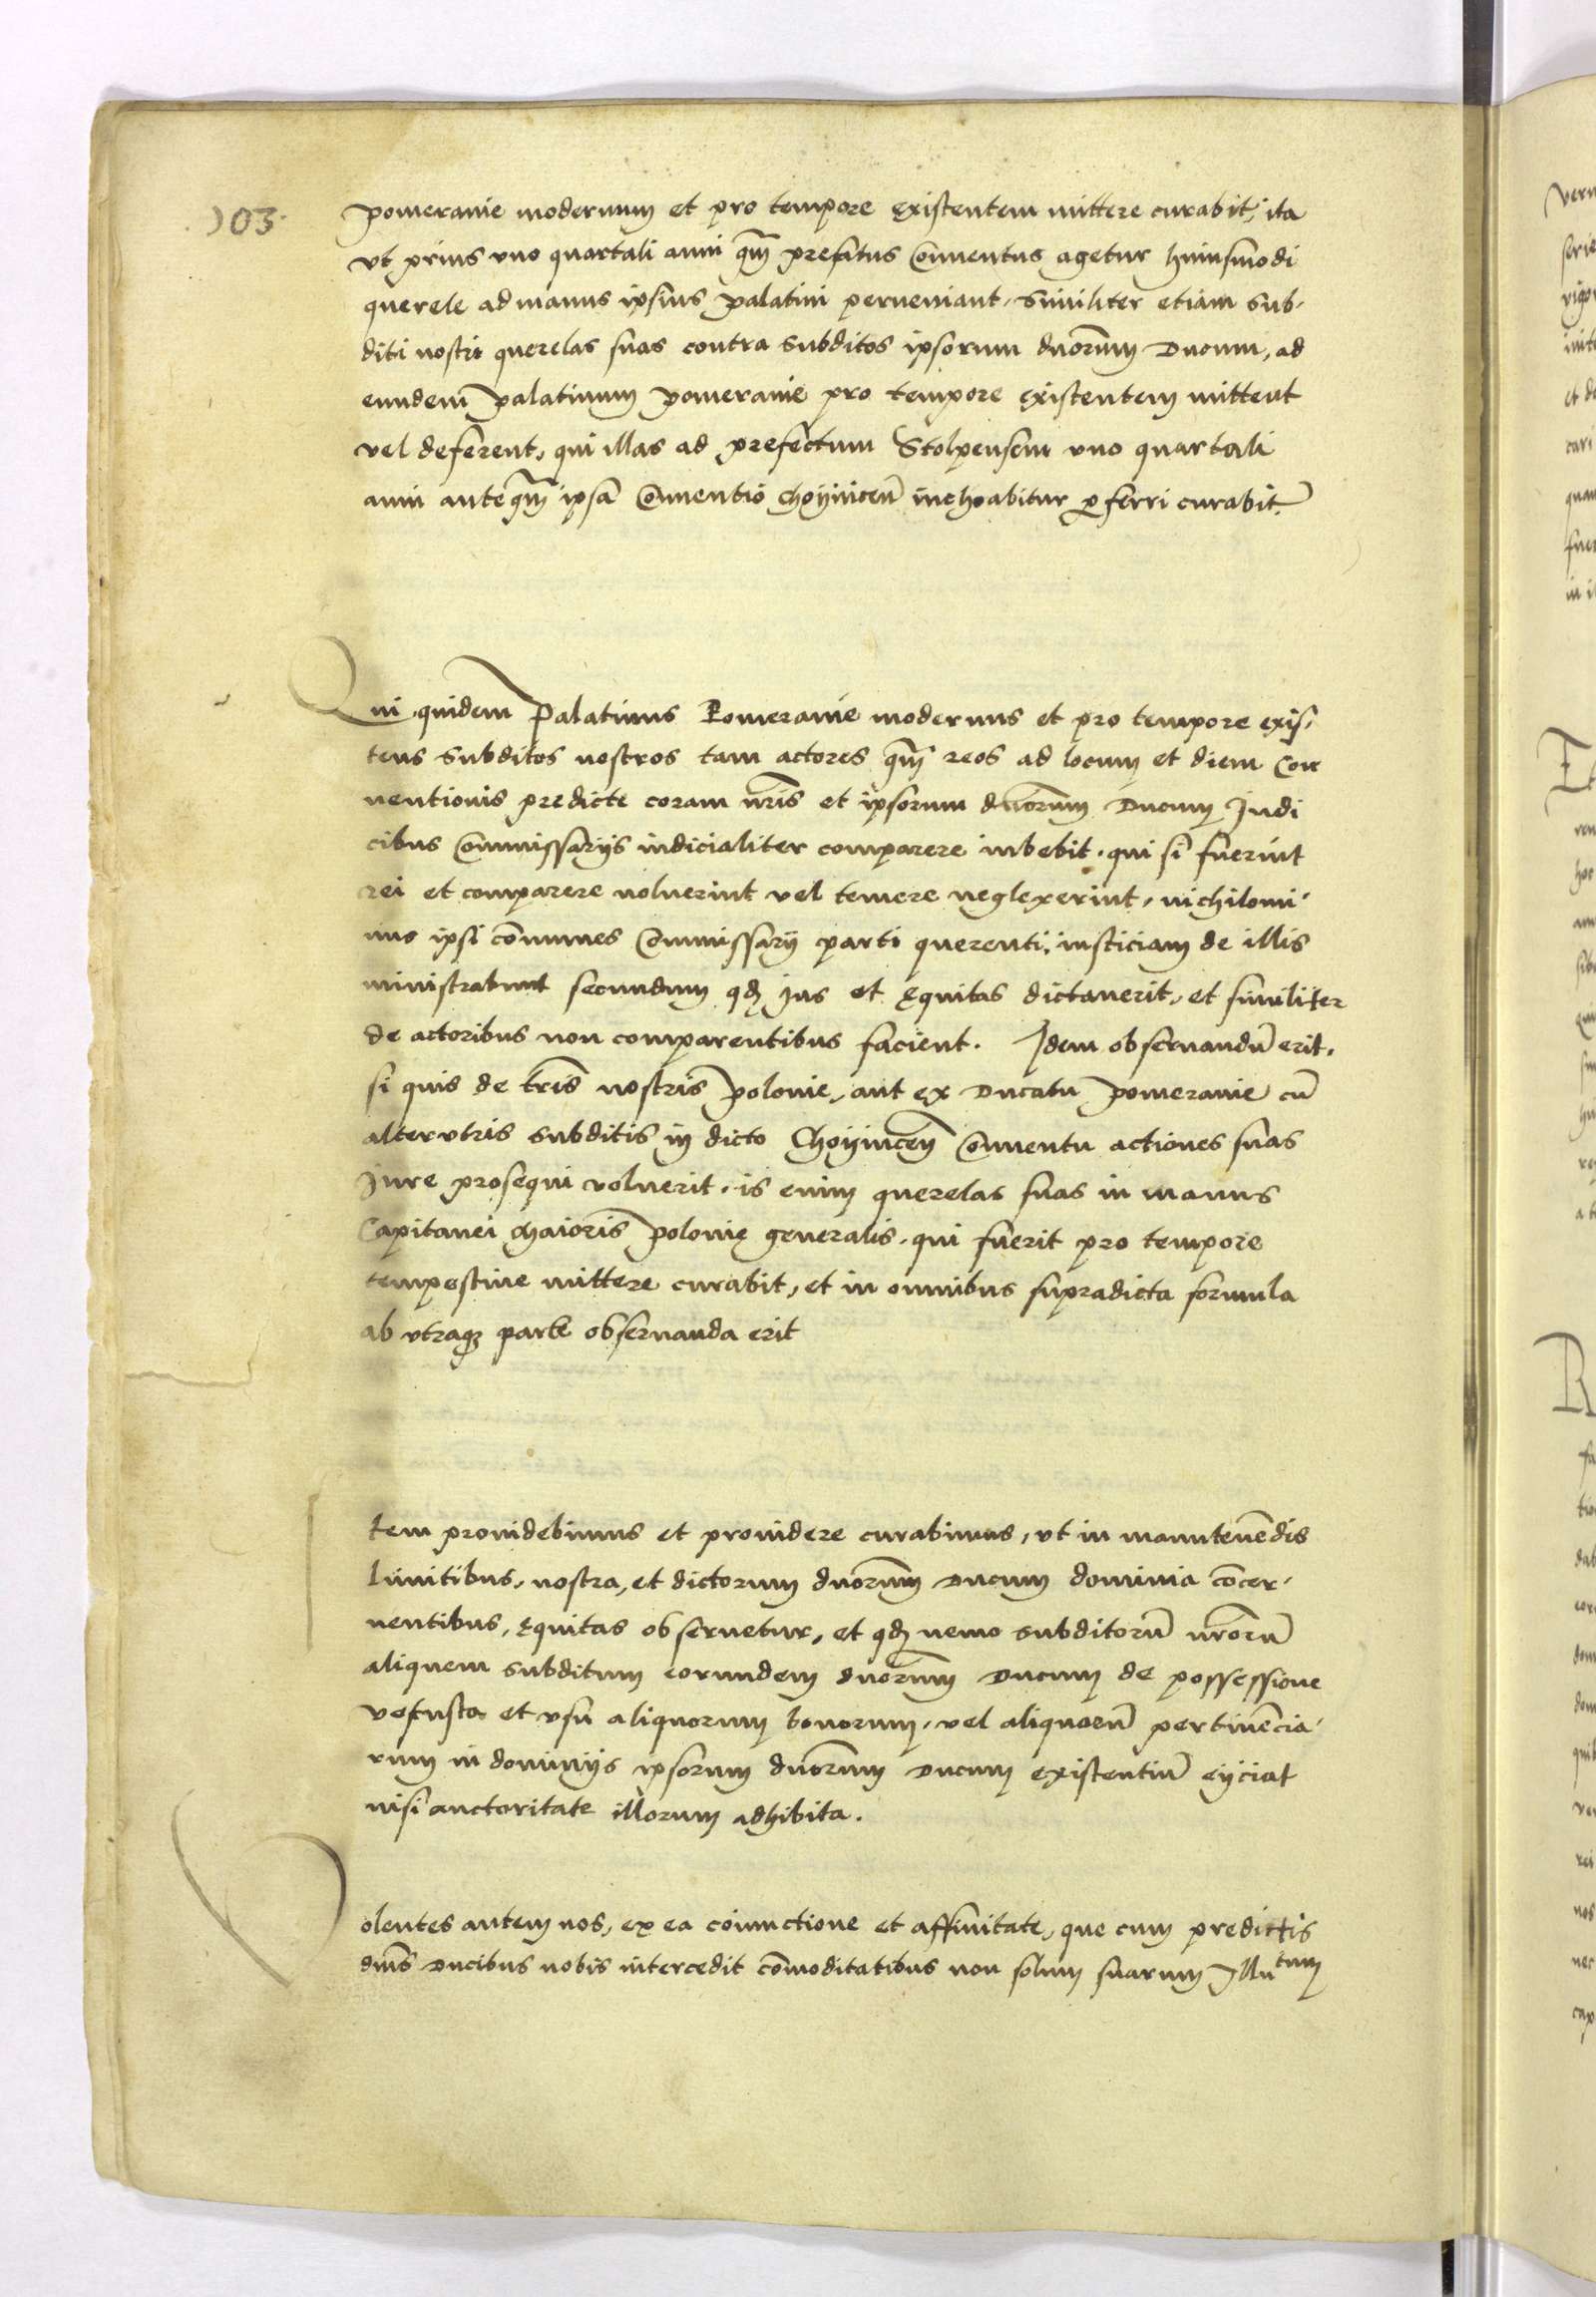 103.
pomeranie modernum et pro tempore existentem mittere curabit, ita
vt prius vno quartali anni qm̄ prefatus Conuentus agetur huiusmodi
querele ad manus ipsius palatini perueniant. Similiter etiam sub-
diti nostri querelas suas contra subditos ipsorum dnorum Ducum, ad
eundem palatinum pomeranie pro tempore existentem mittent
vel deferent, qui illas ad prefectum Stolpensem vno quartali
anni anteqm̄ ipsa Conuentio choÿnicen̄ inchoabitur ꝑferri curabit.
Qui quidem Palatinus Pomeranie modernus et pro tempore exis-
tens subditos nostros tam actores qm̄ reos ad locum et diem Con
uentionis predicte coram nr̄is et ipsorum dnorum Ducum Judi
cibus Commissarijs iudicialiter comparere iubebit. qui si fuerint
rei et comparere noluerint vel temere neglexerint, nichilomi-
nus ipsi com̄unes Commissarij parti querenti iusticiam de illis
ministrabunt secundum qd̄ jus et ęquitas dictauerit, et similiter
de actoribus non comparentibus facient. Idem obseruandū erit,
si quis de tr̄is nostris polonie, aut ex Ducatu pomeranie cū
alterutris subditis in dicto Choÿnicen̄ Conuentu actiones suas
Jure prosequi voluerit. is enim querelas suas in manus
Capitanei Maioris polonię generalis, qui fuerit pro tempore
tempestiue mittere curabit, et in omnibus supradicta formula
ab vtraqꝫ parte obseruanda erit
Item prouidebimus et prouidere curabimus, vt in manutenēdis
limitibus, nostra, et dictorum dnorum Ducum dominia concer-
nentibus, ęquitas obseruetur, et qd̄ nemo subditorū nr̄orū
aliquem subditum eorundem dnorum Ducum de possessione
vetusta et vsu aliquorum bonorum, vel aliquarū pertinēcia-
rum in dominijs ipsorum dnorum Ducum existentiū eijciat
nisi auctoritate illorum adhibita.
Volentes autem nos, ex ea coniunctione et affinitate, que cum predictis
dnis Ducibus nobis intercedit com̄oditatibus non solum suarum Illutum